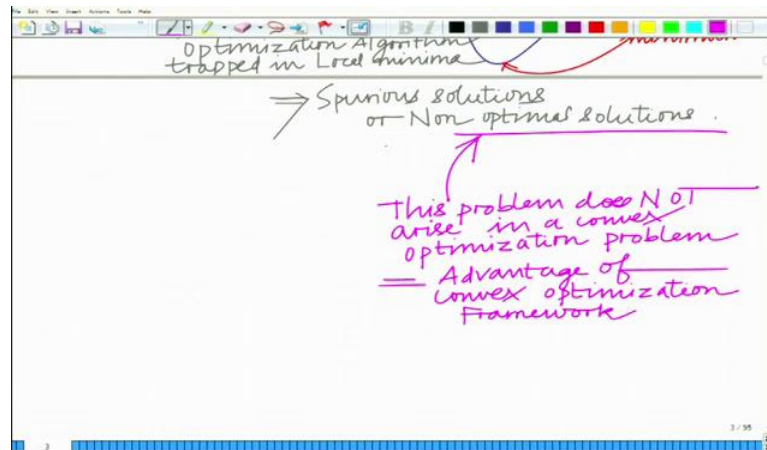 File Edit View Insert Actions Tools Help
Optimization Algorithm
trapped in Local minima
⇒ Spurious solutions
or Non optimal solutions.
This problem does NOT
arise in a convex
optimization problem
= Advantage of
convex optimization
Framework
3 / 95
3